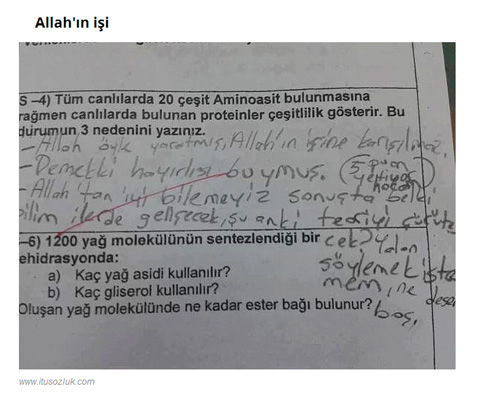 Allah'ın işi
S –4) Tüm canlılarda 20 çeşit Aminoasit bulunmasına
rağmen canlılarda bulunan proteinler çeşitlilik gösterir. Bu
durumun 3 nedenini yazınız.
- Allah öyle yaratmış, Allah'ın işine karışılmaz.
- Demekki hayırlısı buymuş. (5 puan
yetiyor
hocam)
- Allah'tan iyi bilemeyiz sonuçta belki
bilim ilerde gelişecek, şu anki teoriyi çürüte
cek? Yalan
söylemek iste
mem, ne desem
boş.
–6) 1200 yağ molekülünün sentezlendiği bir
ehidrasyonda:
a) Kaç yağ asidi kullanılır?
b) Kaç gliserol kullanılır?
Oluşan yağ molekülünde ne kadar ester bağı bulunur?
www.itusozluk.com